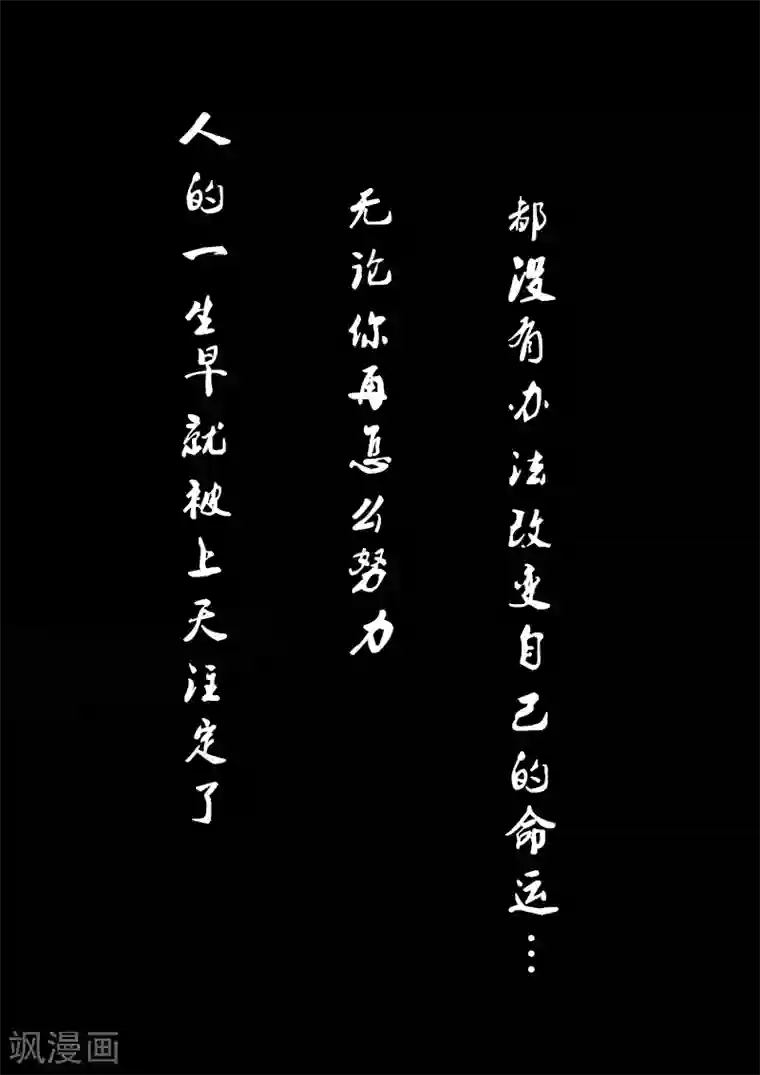 人的一生早就被上天注定了
无论你再怎么努力
都没有办法改变自己的命运…
飒漫画